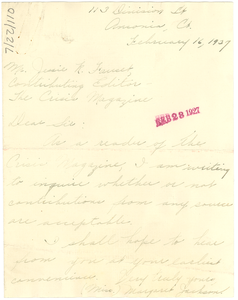 113 Division St
Ansonia, Ct
February 16, 1927
Contributing Editor
The Crisis Magazine
FEB 28 1927
Dear Sir:
As a reader of the
Crisis Magazine, I am writing
to inquire whether or not
contributions from any source
are acceptable.
I shall hope to hear
from you at your earliest
convenience.
Very truly yours
Mrs. Margaret Jackson